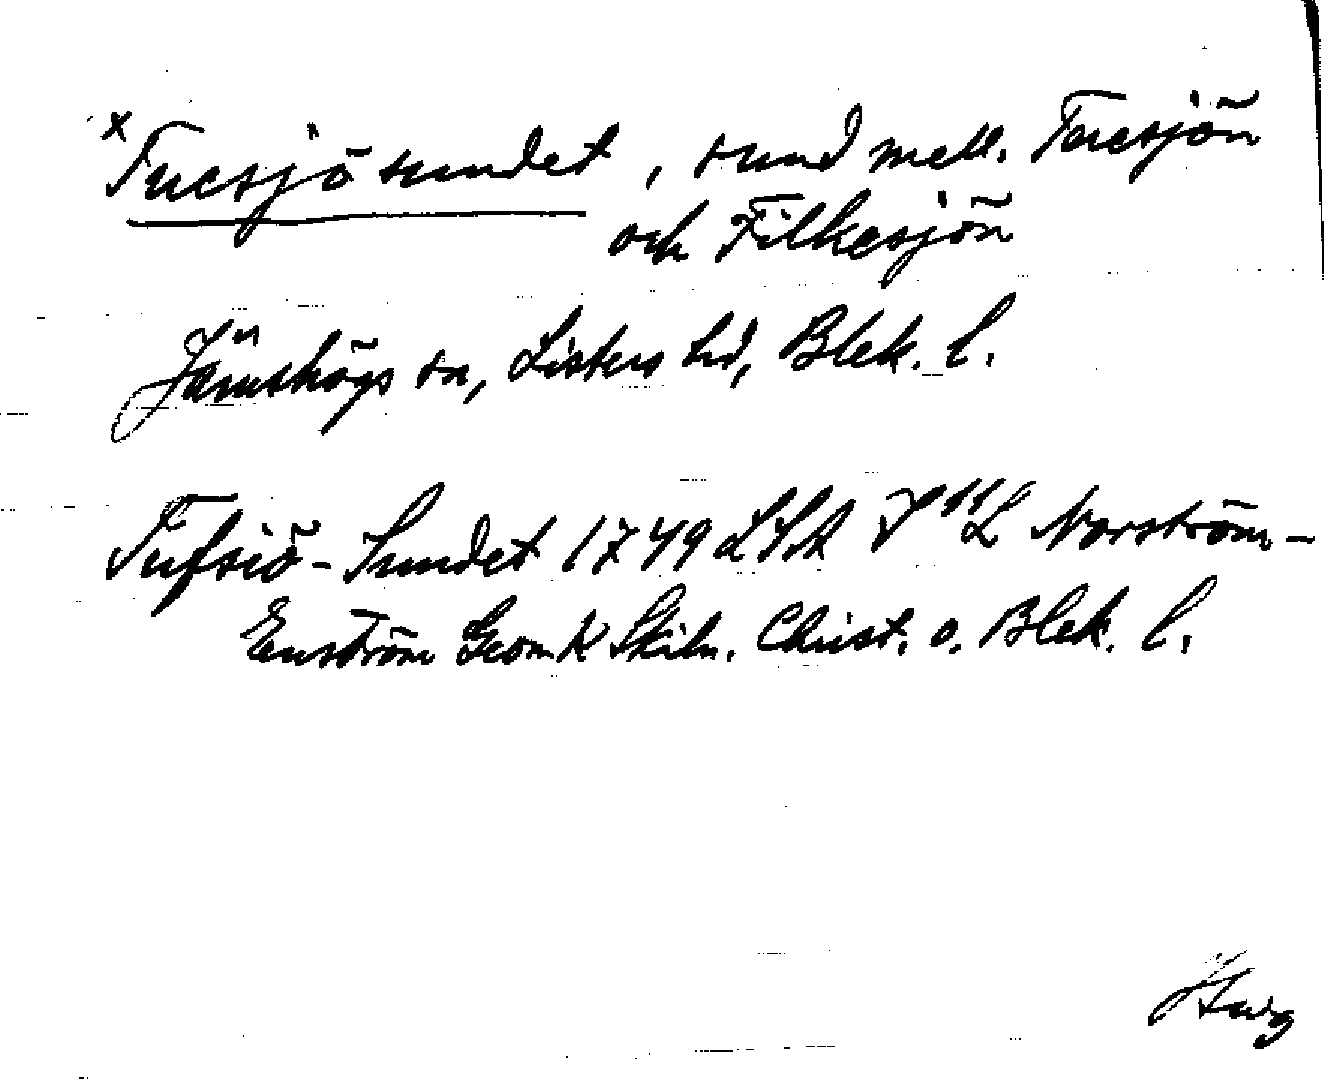 x Tuesjösundet, sund mell. Tuesjön
och Filkesjön
Jämshögs sn, Listers hd, Blek. l.
Tufsiö-Sundet 1749 LSA Norström-
Enström GeomK Skiln. Christ. o. Blek. l.